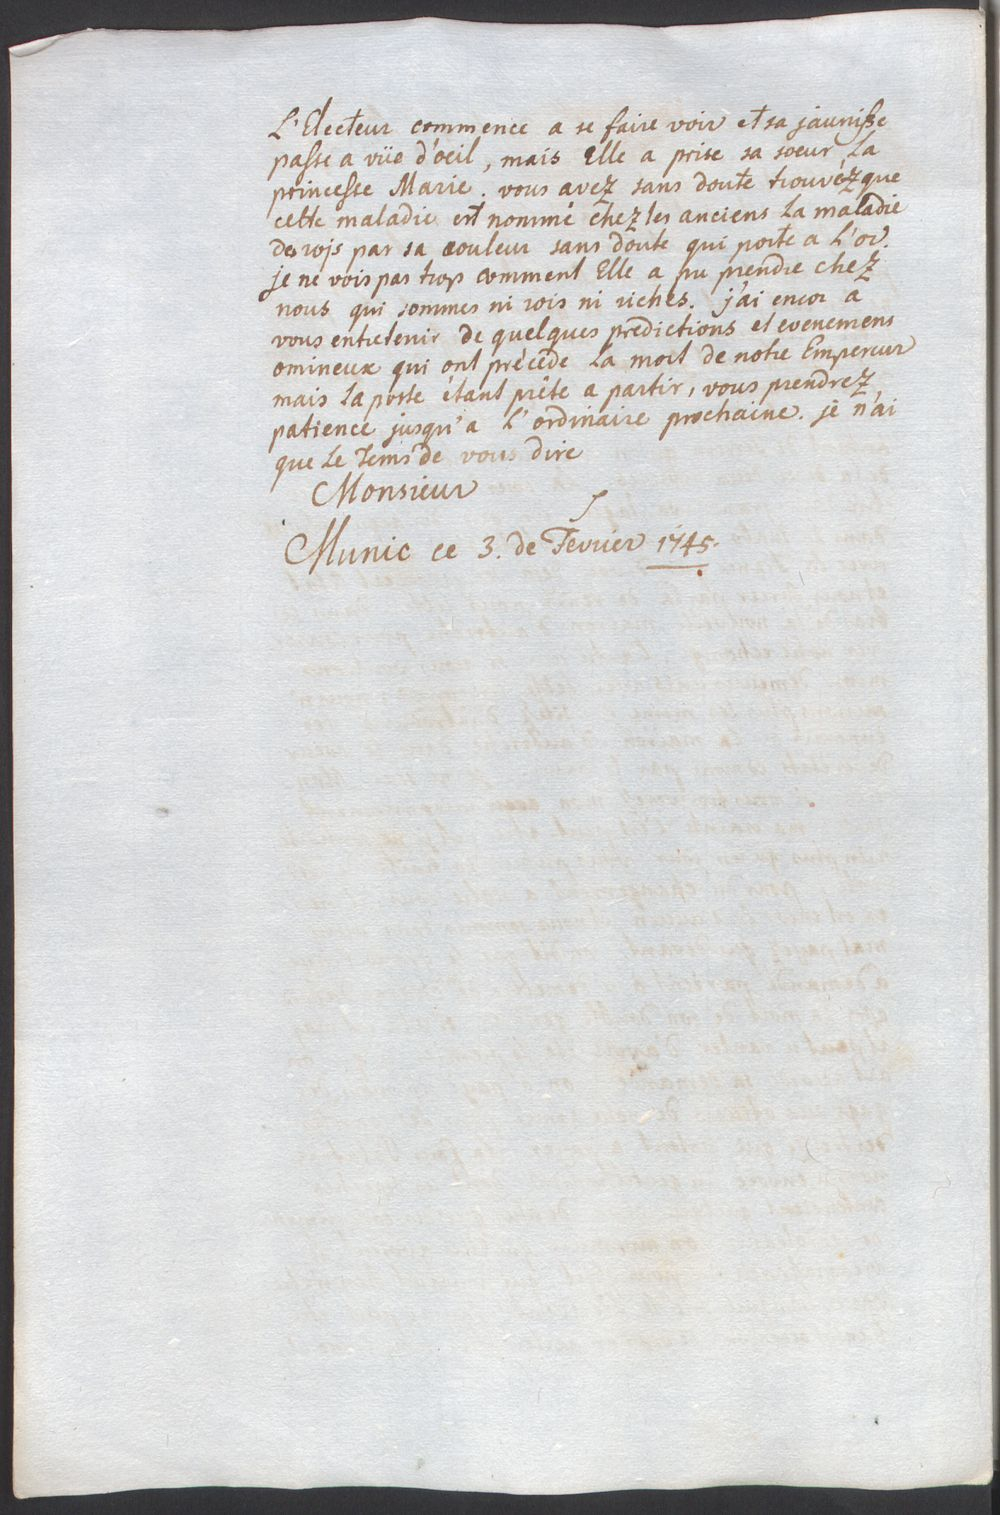 L'Electeur commence a se faire voir et sa jaunisse
passe a vüe d'oeil, mais Elle a prise sa soeur La
princesse Marie. vous avez sans doute trouvéz que
cette maladie est nommé chez les anciens La maladie
des rojs par sa couleur sans doute qui porte a L'or.
je ne vois pas trop comment Elle a pu prendre chez
nous qui sommes ni rois ni riches. j'ai encor a
vous entretenir de quelques predictions et evenemens
omineux qui ont précédé La mort de notre Empereur
mais La poste étant prête a partir, vous prendrez
patience jusqu'a L'ordinaire prochaine. je n'ai
que Le Tems de vous dire
Monsieur
Munic ce 3. de Fevrier 1745.